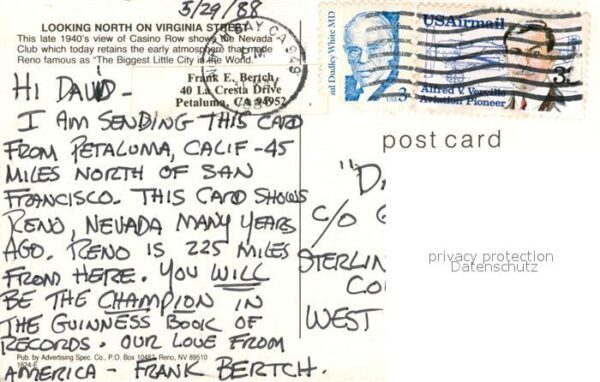 3/29/88
LOOKING NORTH ON VIRGINIA STREET
This late 1940's view of Casino Row shows the Nevada
Club which today retains the early atmosphere that made
Reno famous as "The Biggest Little City in the World.
Frank E. Bertch
40 La Cresta Drive
Petaluma, CA 94952
CA 949
PM
ul Dudley White MD
USA 3
USAirmail
Alfred V. Verville
Aviation Pioneer
3
post card
HI DAVID-
I AM SENDING THIS CARD
FROM PETALUMA, CALIF -45
MILES NORTH OF SAN
FRANCISCO. THIS CARD SHOWS
RENO, NEVADA MANY YEARS
AGO. RENO IS 225 MILES
FROM HERE. YOU WILL
BE THE CHAMPION IN
THE GUINNESS BOOK OF
RECORDS. OUR LOVE FROM
AMERICA - FRANK BERTCH.
Pub. by Advertising Spec. Co., P.O. Box 10487, Reno, NV 89510
1624-E
"DA
C/O
STERLIN
CO
WEST
privacy protection
Datenschutz